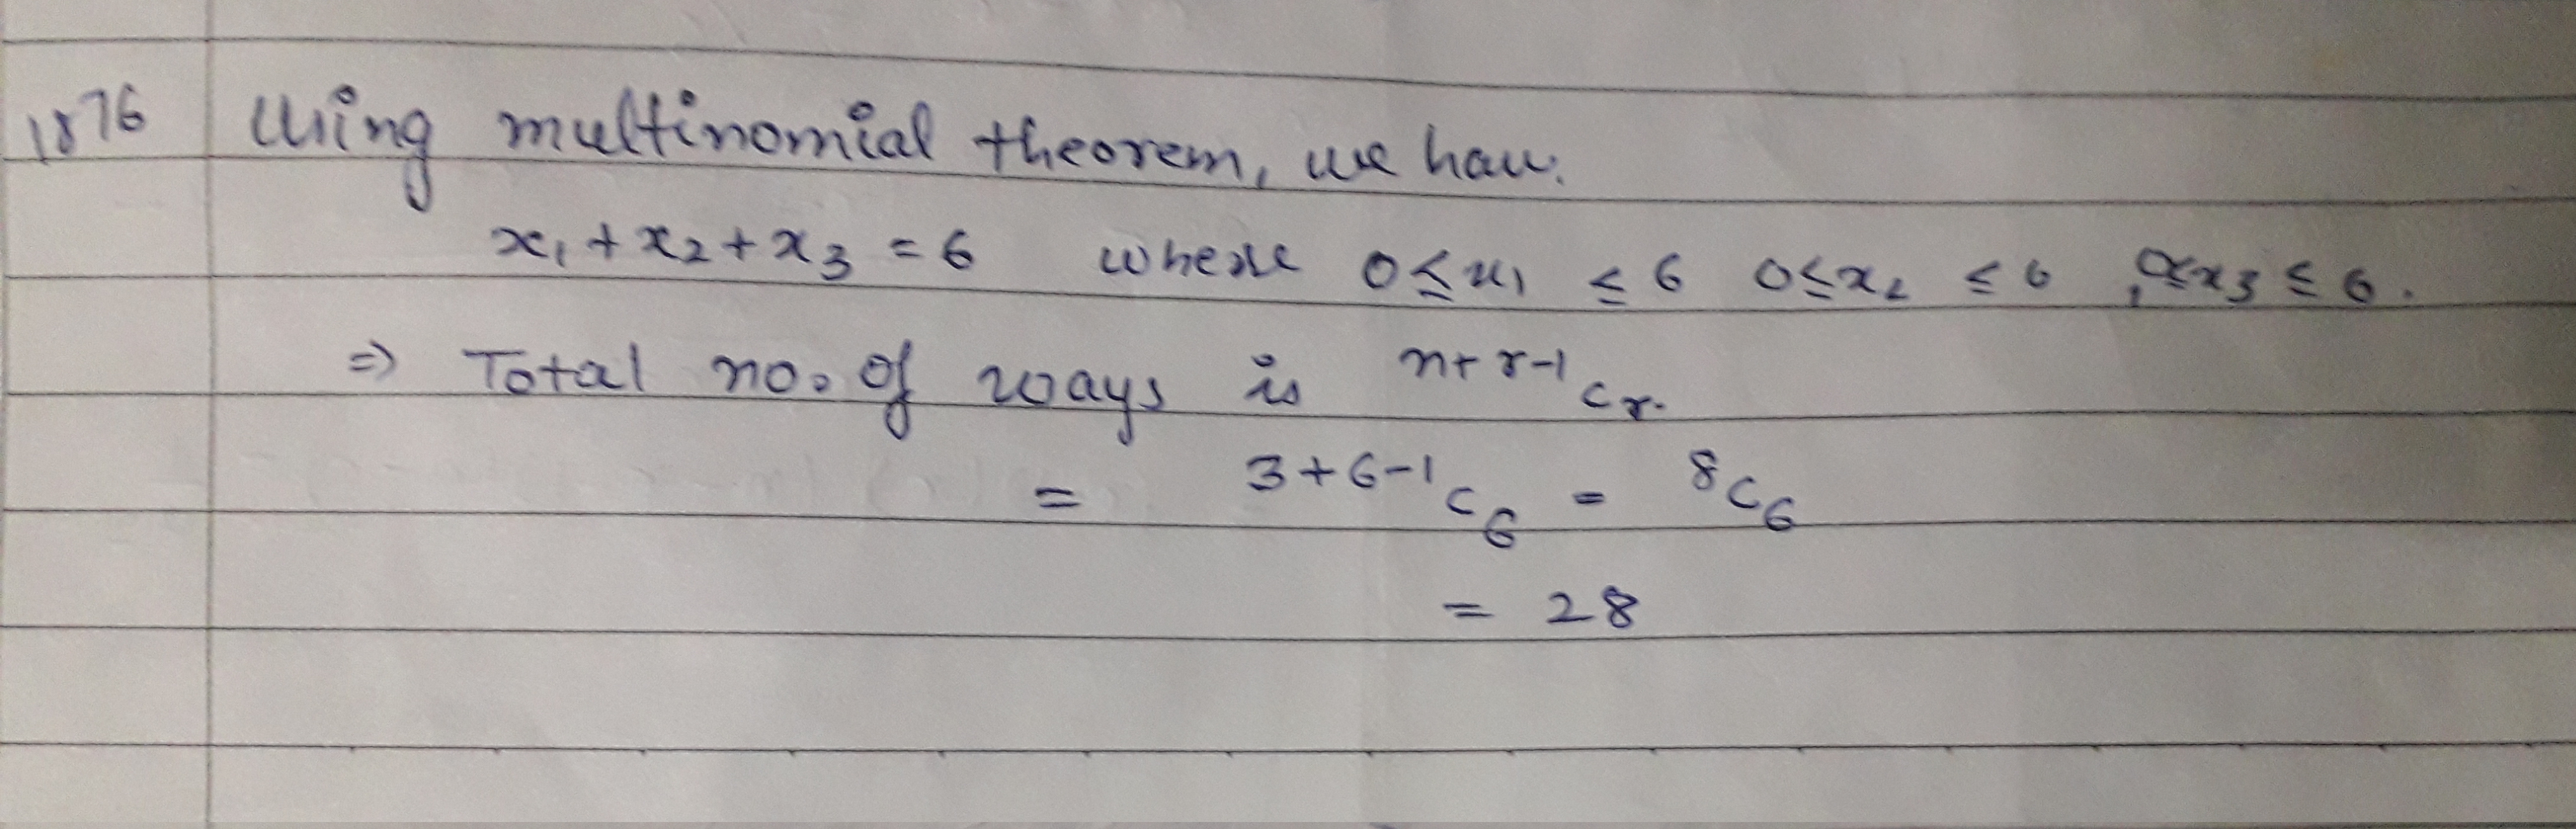 1876 Using multinomial theorem, we have.
x₁ + x₂ + x₃ = 6 where 0 ≤ x₁ ≤ 6 0 ≤ x₂ ≤ 6 , 0 ≤ x₃ ≤ 6.
⇒ Total no. of ways is ⁿ⁺ʳ⁻¹Cᵣ.
= ³⁺⁶⁻¹C₆ = ⁸C₆
= 28